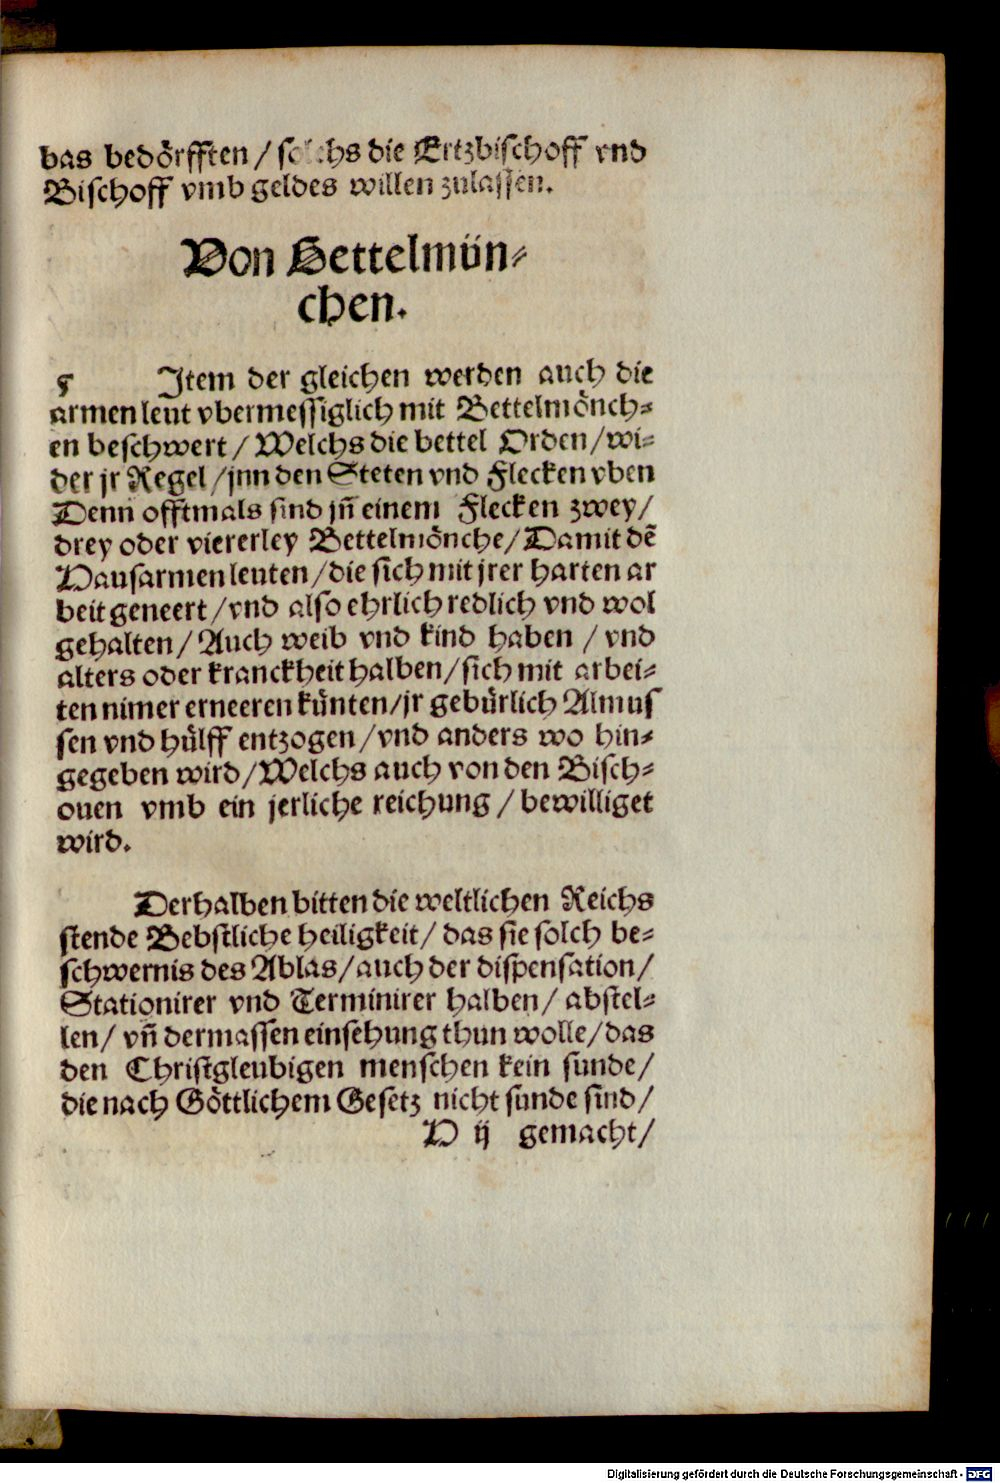 bas bedörfften / solchs die Ertzbischoff vnd
Bischoff vmb geldes willen zulassen.
Von Bettelmün-
chen.
5 Item der gleichen werden auch die
armen leut vbermessiglich mit Bettelmönch-
en beschwert / Welchs die bettel Orden / wi-
der jr Regel / jnn den Steten vnd Flecken vben
Denn offtmals sind jn̄ einem Flecken zwey /
drey oder viererley Bettelmönche / Damit dē
Hausarmen leuten / die sich mit jrer harten ar
beit geneert / vnd also ehrlich redlich vnd wol
gehalten / Auch weib vnd kind haben / vnd
alters oder kranckheit halben / sich mit arbei-
ten nimer erneeren künten / jr gebürlich Almus
sen vnd hülff entzogen / vnd anders wo hin-
gegeben wird / Welchs auch von den Bisch-
ouen vmb ein jerliche reichung / bewilliget
wird.
Derhalben bitten die weltlichen Reichs
stende Bebstliche heiligkeit / das sie solch be-
schwernis des Ablas / auch der dispensation /
Stationirer vnd Terminirer halben / abstel-
len / vn̄ dermassen einsehung thun wolle / das
den Christgleubigen menschen kein sunde /
die nach Göttlichem Gesetz nicht sunde sind /
H ij gemacht /
Digitalisierung gefördert durch die Deutsche Forschungsgemeinschaft - DFG